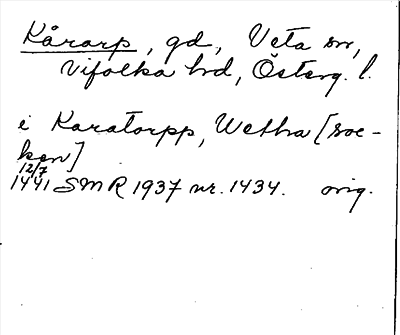 Kårarp, gd, Veta sn,
Vifolka hd, Österg. l.
i Karatorpp, Wetha [soc-
ken]
12/7
1441 SMR 1937 nr. 1434. orig.